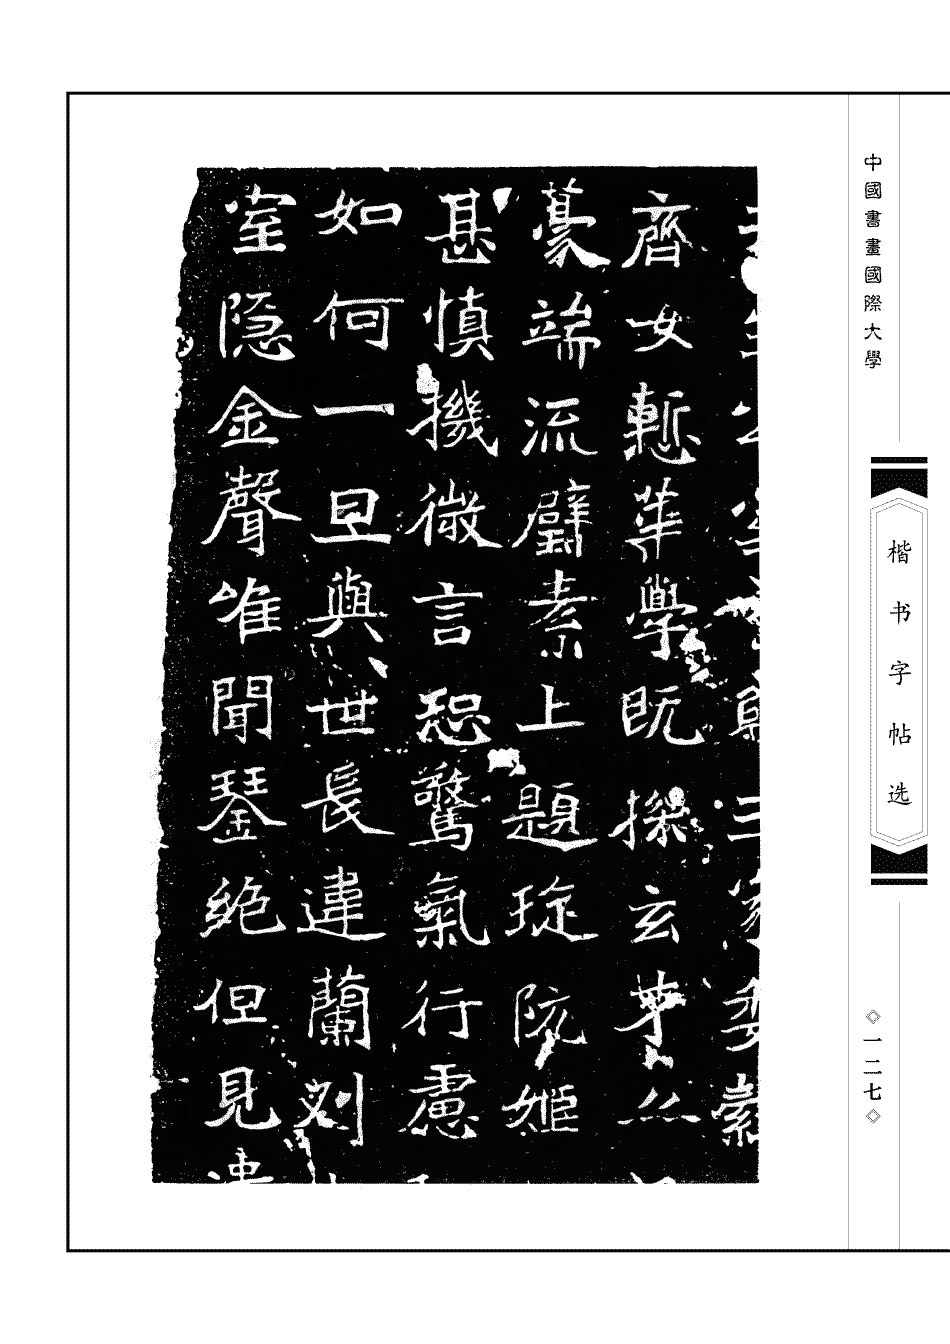 中國書畫國際大學
楷书字帖选
一二七
三
齊女慙華學既操玄茅
豪端流璧素上題琁阮姬
甚慎機微言恕驚氣行慮
如何一旦與世長違蘭刘
室隐金聲唯聞琴絶但見